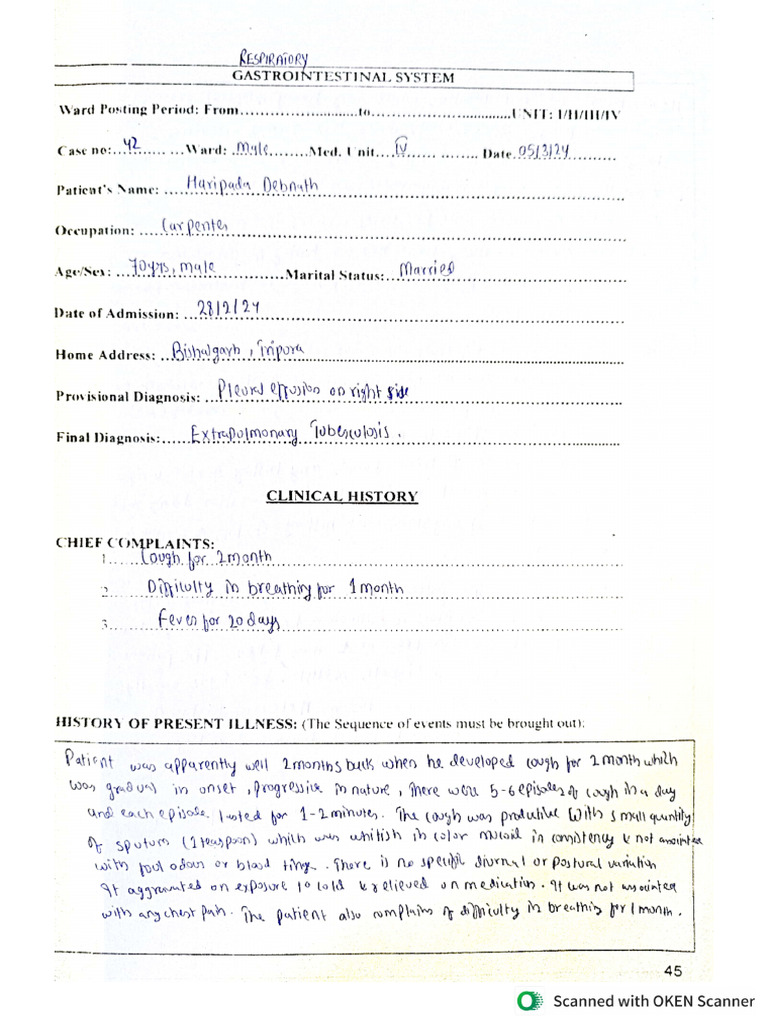 RESPIRATORY
GASTROINTESTINAL SYSTEM
Ward Posting Period: From..............................to..............................UNIT: I/II/III/IV
Case no:....42.......Ward: Male........Med. Unit....IV.............Date 05/3/24
Patient's Name: ....Haripada Debnath
Occupation: ....Carpenter
Age/Sex: ...70yrs, male..................Marital Status:...Married
Date of Admission: ...28/2/24
Home Address: ...Bishalgarh, Tripura
Provisional Diagnosis: ...Pleural effusion on right side
Final Diagnosis:......Extrapulmonary Tuberculosis.
CLINICAL HISTORY
CHIEF COMPLAINTS:
1......Cough for 2month
2......Difficulty in breathing for 1 month
3......Fever for 20 days
HISTORY OF PRESENT ILLNESS: (The Sequence of events must be brought out):
Patient was apparently well 2months back when he developed cough for 2month which
was gradual in onset, progressive in nature, There were 5-6 episodes of cough in a day
and each episode lasted for 1-2minutes. The cough was produtive with small quantity
of sputum (1 teaspoon) which was whitish in color mucoid in consistency & not
with foul odour or blood tinge. There is no specific diurnal or postural variation
It aggravated on exposure to cold & relieved on medication. It was not associated
with any chest pain. The patient also complains of difficulty in breathing for 1 month.
45
Scanned with OKEN Scanner